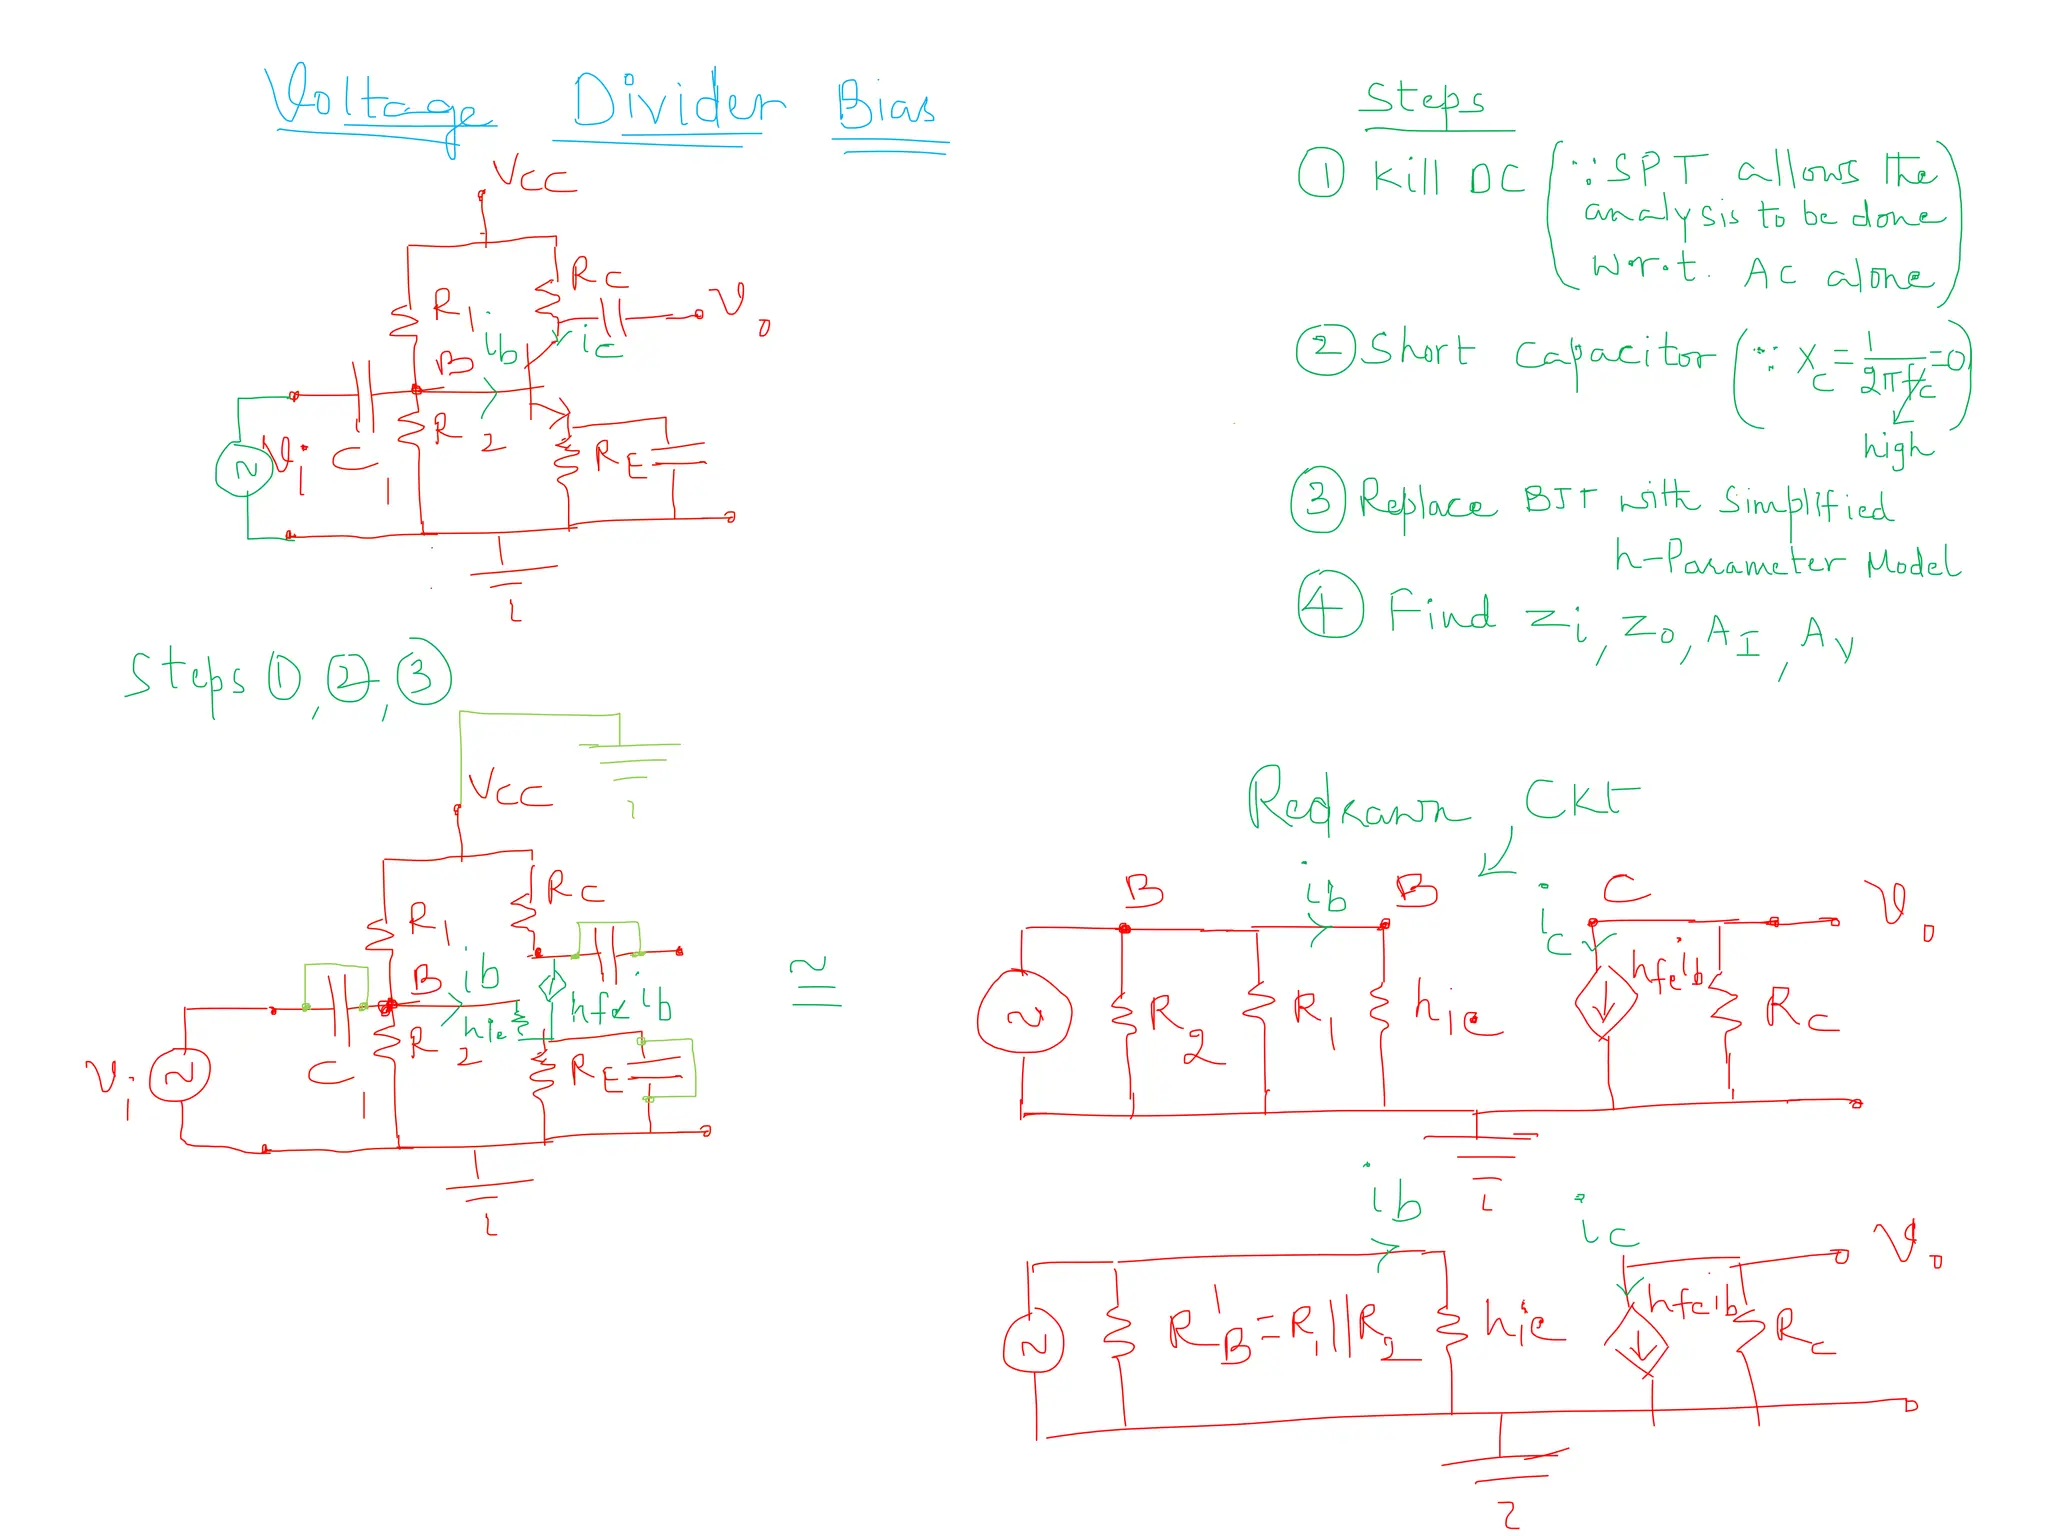 Voltage Divider Bias
VCC
RC
R1
Vo
ib
ic
B
Vi
C1
R2
RE
Steps
① Kill DC (∵ SPT allows the
analysis to be done
w.r.t. AC alone)
② Short Capacitor (∵ XC = 1/2πfC = 0)
high
③ Replace BJT with Simplified
h-Parameter Model
④ Find Zi, Zo, AI, AV
Steps ①, ②, ③
VCC
RC
R1
B
ib
hie
hfe ib
Vi
C1
R2
RE
≅
Redrawn CKT
B
ib
B
ic
C
Vo
R2
R1
hie
hfe ib
RC
ib
ic
Vo
R'B = R1 || R2
hie
hfe ib
RC